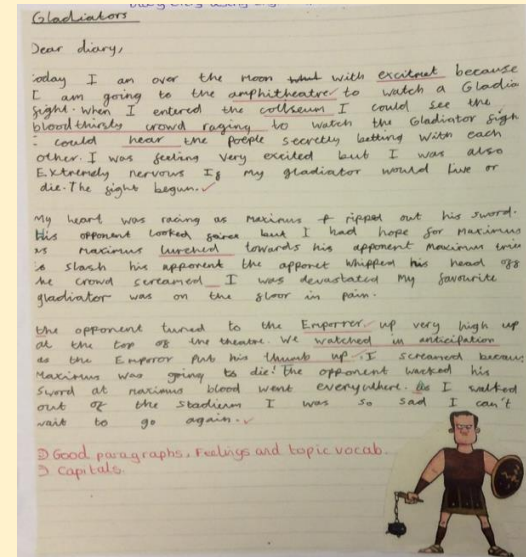 Gladiators
Dear diary,
Today I am over the moon with excitment because
I am going to the amphitheatre to watch a Gladia
fight. when I entered the collseum I could see the
bloodthirsty crowd raging to watch the Gladiator figh
I could hear the poeple secretly betting with each
other. I was feeling very excited but I was also
Extremely nervous If my gladiator would live or
die. The fight begun.
My heart was racing as Maximus ripped out his sword.
His opponent looked but I had hope for Maximus
as Maximus lurched towards his apponent Maximus tries
to slash his apponent the apponet whipped his head off
the crowd screamed I was devastated My favourite
gladiator was on the floor in pain.
the opponent turned to the Emperrer up very high up
at the top of the theatre. We watched in anticipation
as the Emporor Put his thumb up. I screamed becaus
Maximus was going to die! the opponent wacked his
sword at maximus blood went everywhere. As I walked
out of the stadium I was so sad I can't
wait to go again.
Good paragraphs, Feelings and topic vocab.
Capitals.